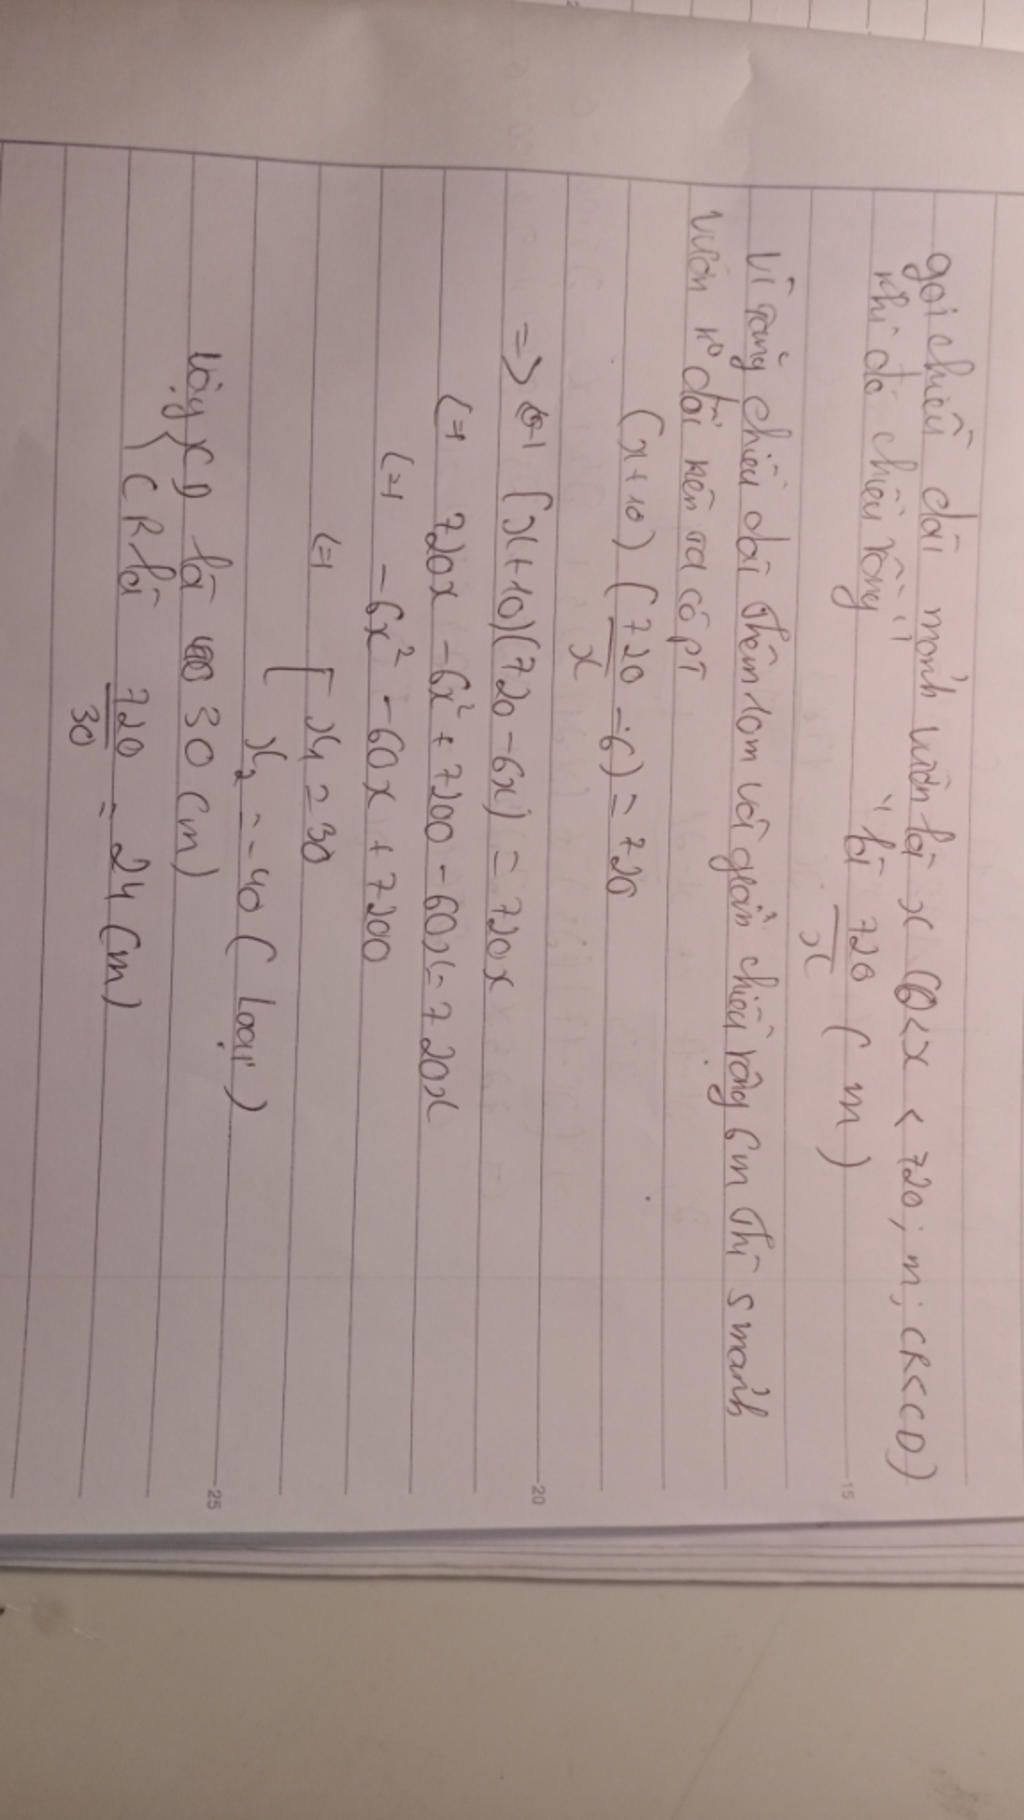 gọi chiều dài mảnh vườn là x (0<x < 720; m; CR<CD)
khi đó chiều rộng " " là 720/x (m)
Vì tăng chiều dài thêm 10m và giảm chiều rộng 6m thì S mảnh
vườn ko đổi nên ta có pt
(x+10) (720/x - 6) = 720
=> (x+10)(720-6x) = 720x
(=) 720x - 6x² + 7200 - 60x = 720x
(=) - 6x² - 60x + 7200
(=) [ x1 = 30
x2 = -40 ( loại )
Vậy { CD là 30 (m)
CR là 720/30 = 24 (m)
15
20
25